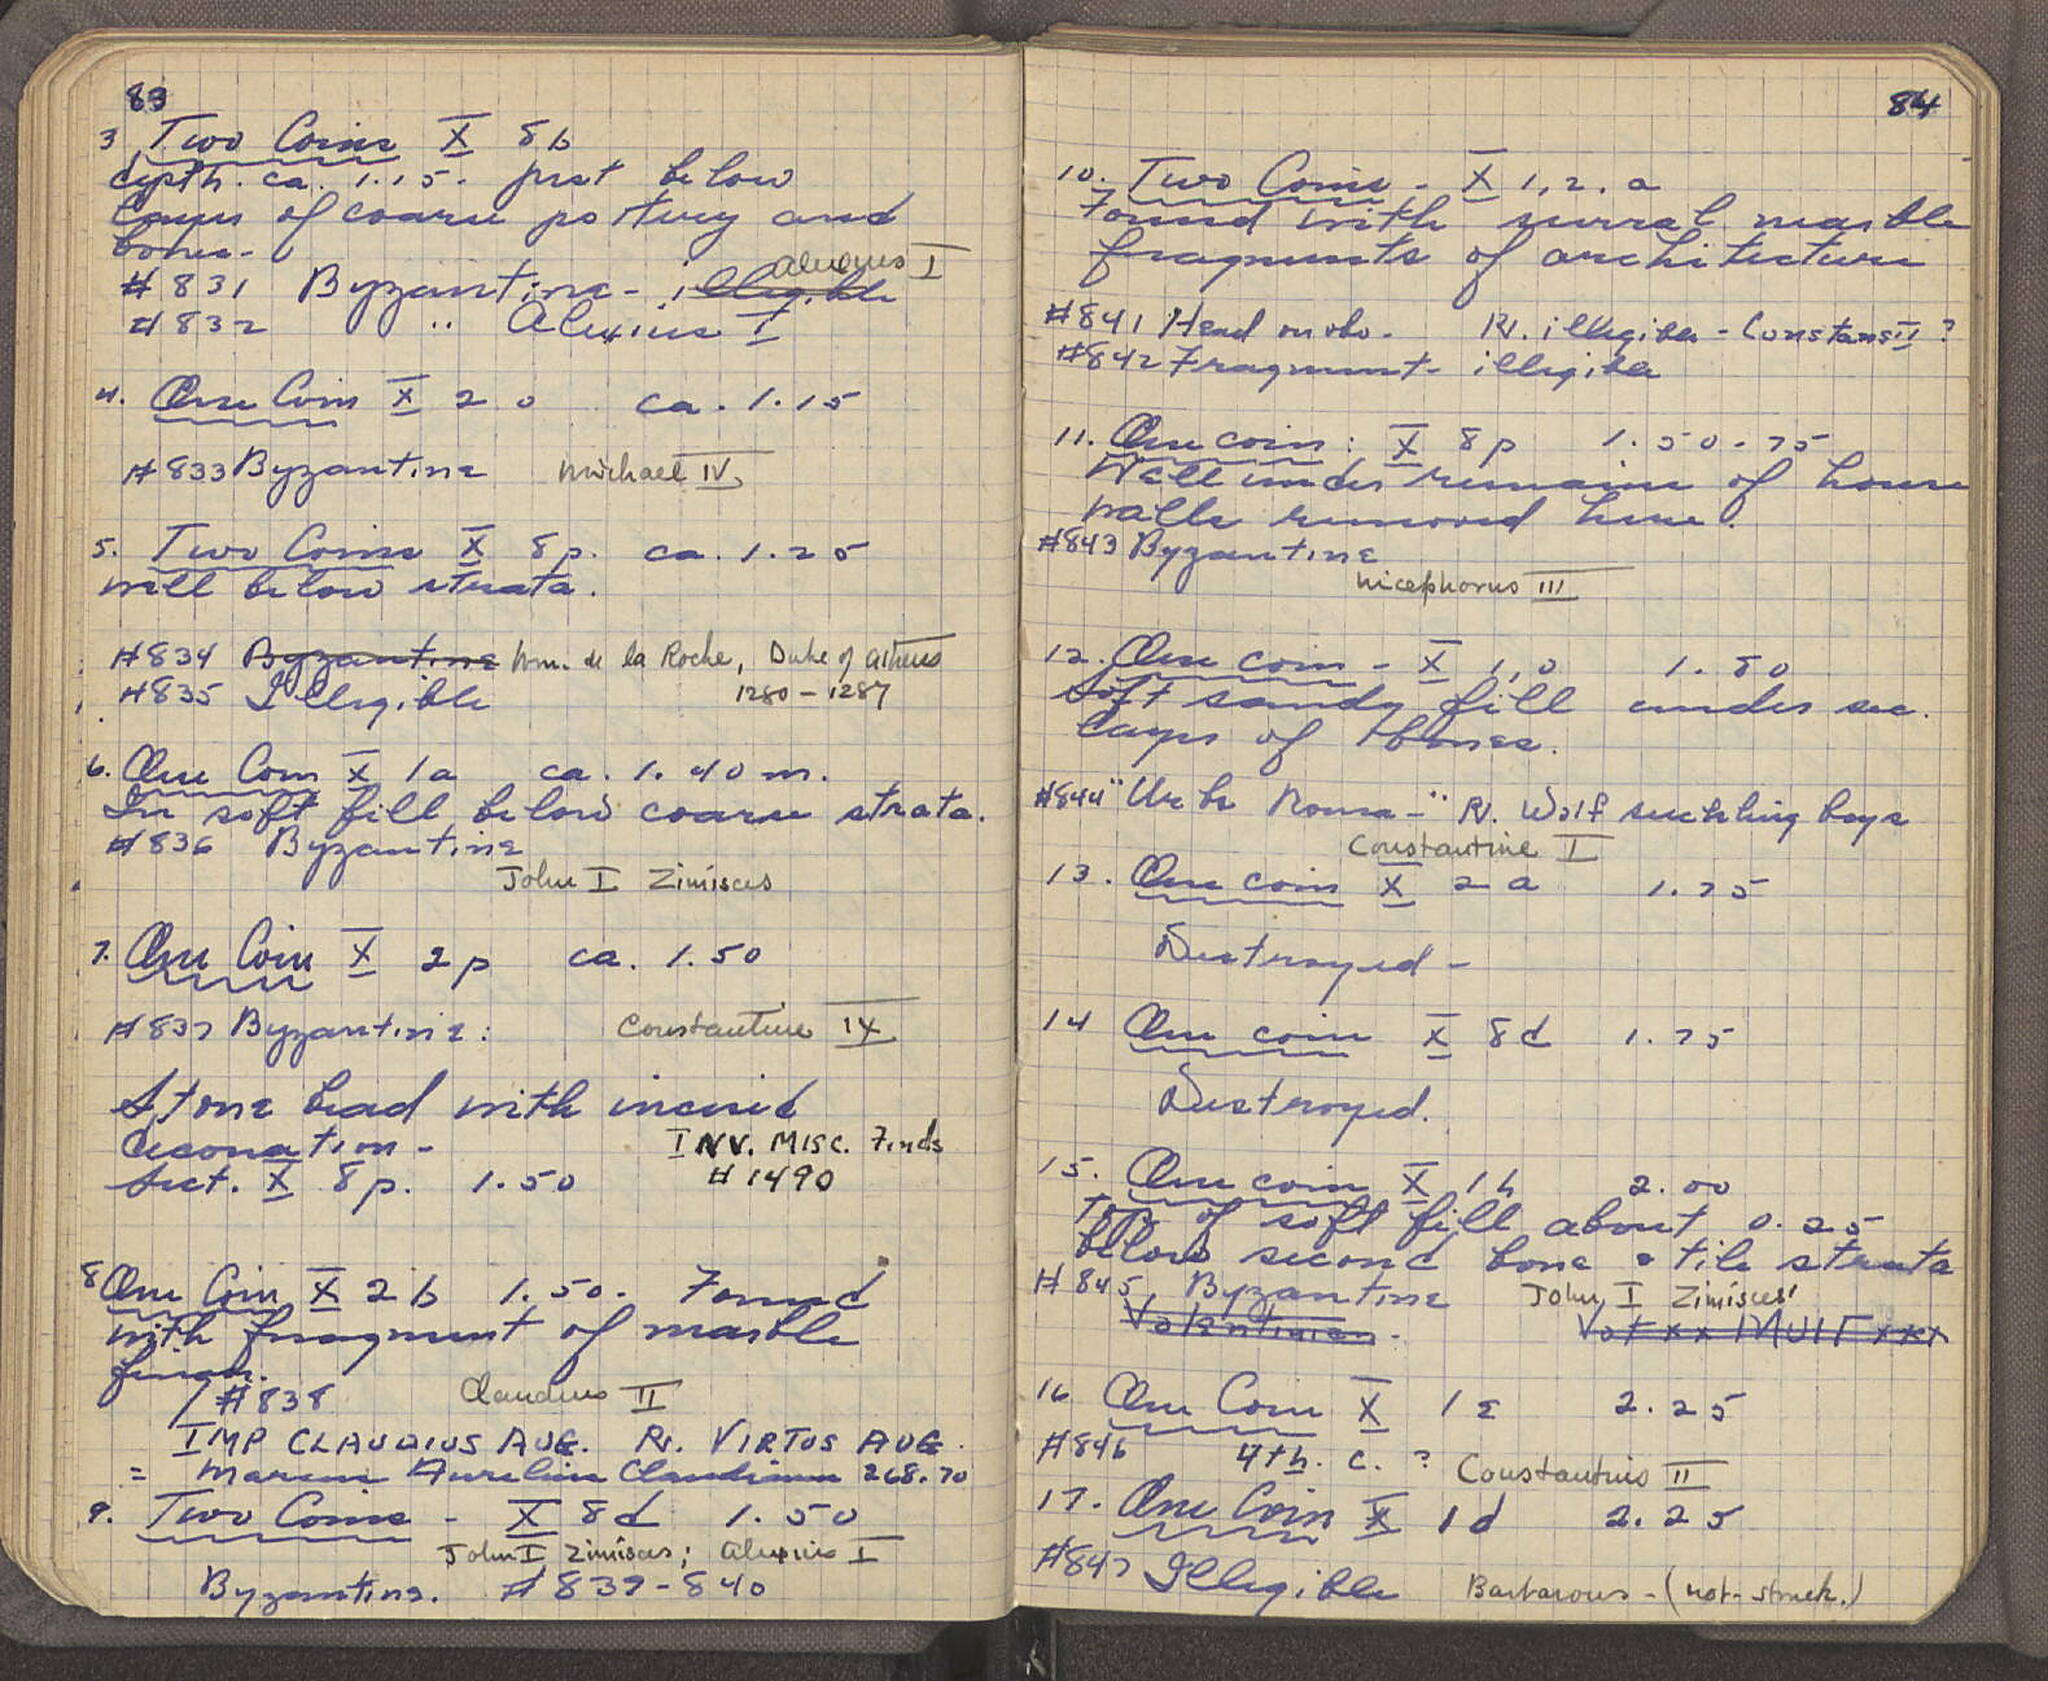 83
3 Two Coins X 8b
depth. ca. 1.15. just below
layer of coarse pottery and
bones.
Alexius I
#831 Byzantine - illegible
#832 " Alexius I
4. One Coin X 2 o ca. 1.15
#833 Byzantine Michael IV
5. Two Coins X 8p. ca. 1.25
well below strata.
#834 Byzantine Wm. de la Roche, Duke of Athens
#835 Illegible 1280-1287
6. One Coin X 1a ca. 1.40 m.
In soft fill below coarse strata.
#836 Byzantine
John I Zimisces
7. One Coin X 2p ca. 1.50
#837 Byzantine: Constantine IX
Stone bead with incised
decoration - INV. MISC. Finds
Sect. X 8p. 1.50 #1490
8 One Coin X 2b 1.50. Found
with fragment of marble
finger.
#838 Claudius II
IMP CLAUDIUS AUG. Rv. VIRTUS AUG.
= Marcus Aurelius Claudius 268.70
9. Two Coins - X 8d 1.50
John I Zimisces; Alexius I
Byzantine. #839-840
84
10. Two Coins - X 1,2.a
Found with several marble
fragments of architecture
#841 Head on obv. Rv. illegible - Constans II ?
#842 Fragment - illegible
11. One coin: X 8p 1.50-75
Well under remains of house
walls removed here.
#843 Byzantine
Nicephorus III
12. One coin - X 1,o 1.80
Soft sandy fill under sec.
layer of bones.
#844 "Urbs Roma-" Rv. Wolf suckling boys
Constantine I
13. One coin X 2a 1.75
Destroyed -
14 One coin X 8d 1.75
Destroyed.
15. One coin X 1h 2.00
Top of soft fill about 0.25
below second bone & tile strata
#845 Byzantine John I Zimisces
Valentinian. Vot xx MULT xxx
16 One Coin X 1 ε 2.25
#846 4th. c. ? Constantius II
17. One Coin X 1d 2.25
#847 Illegible Barbarous - (not-struck.)